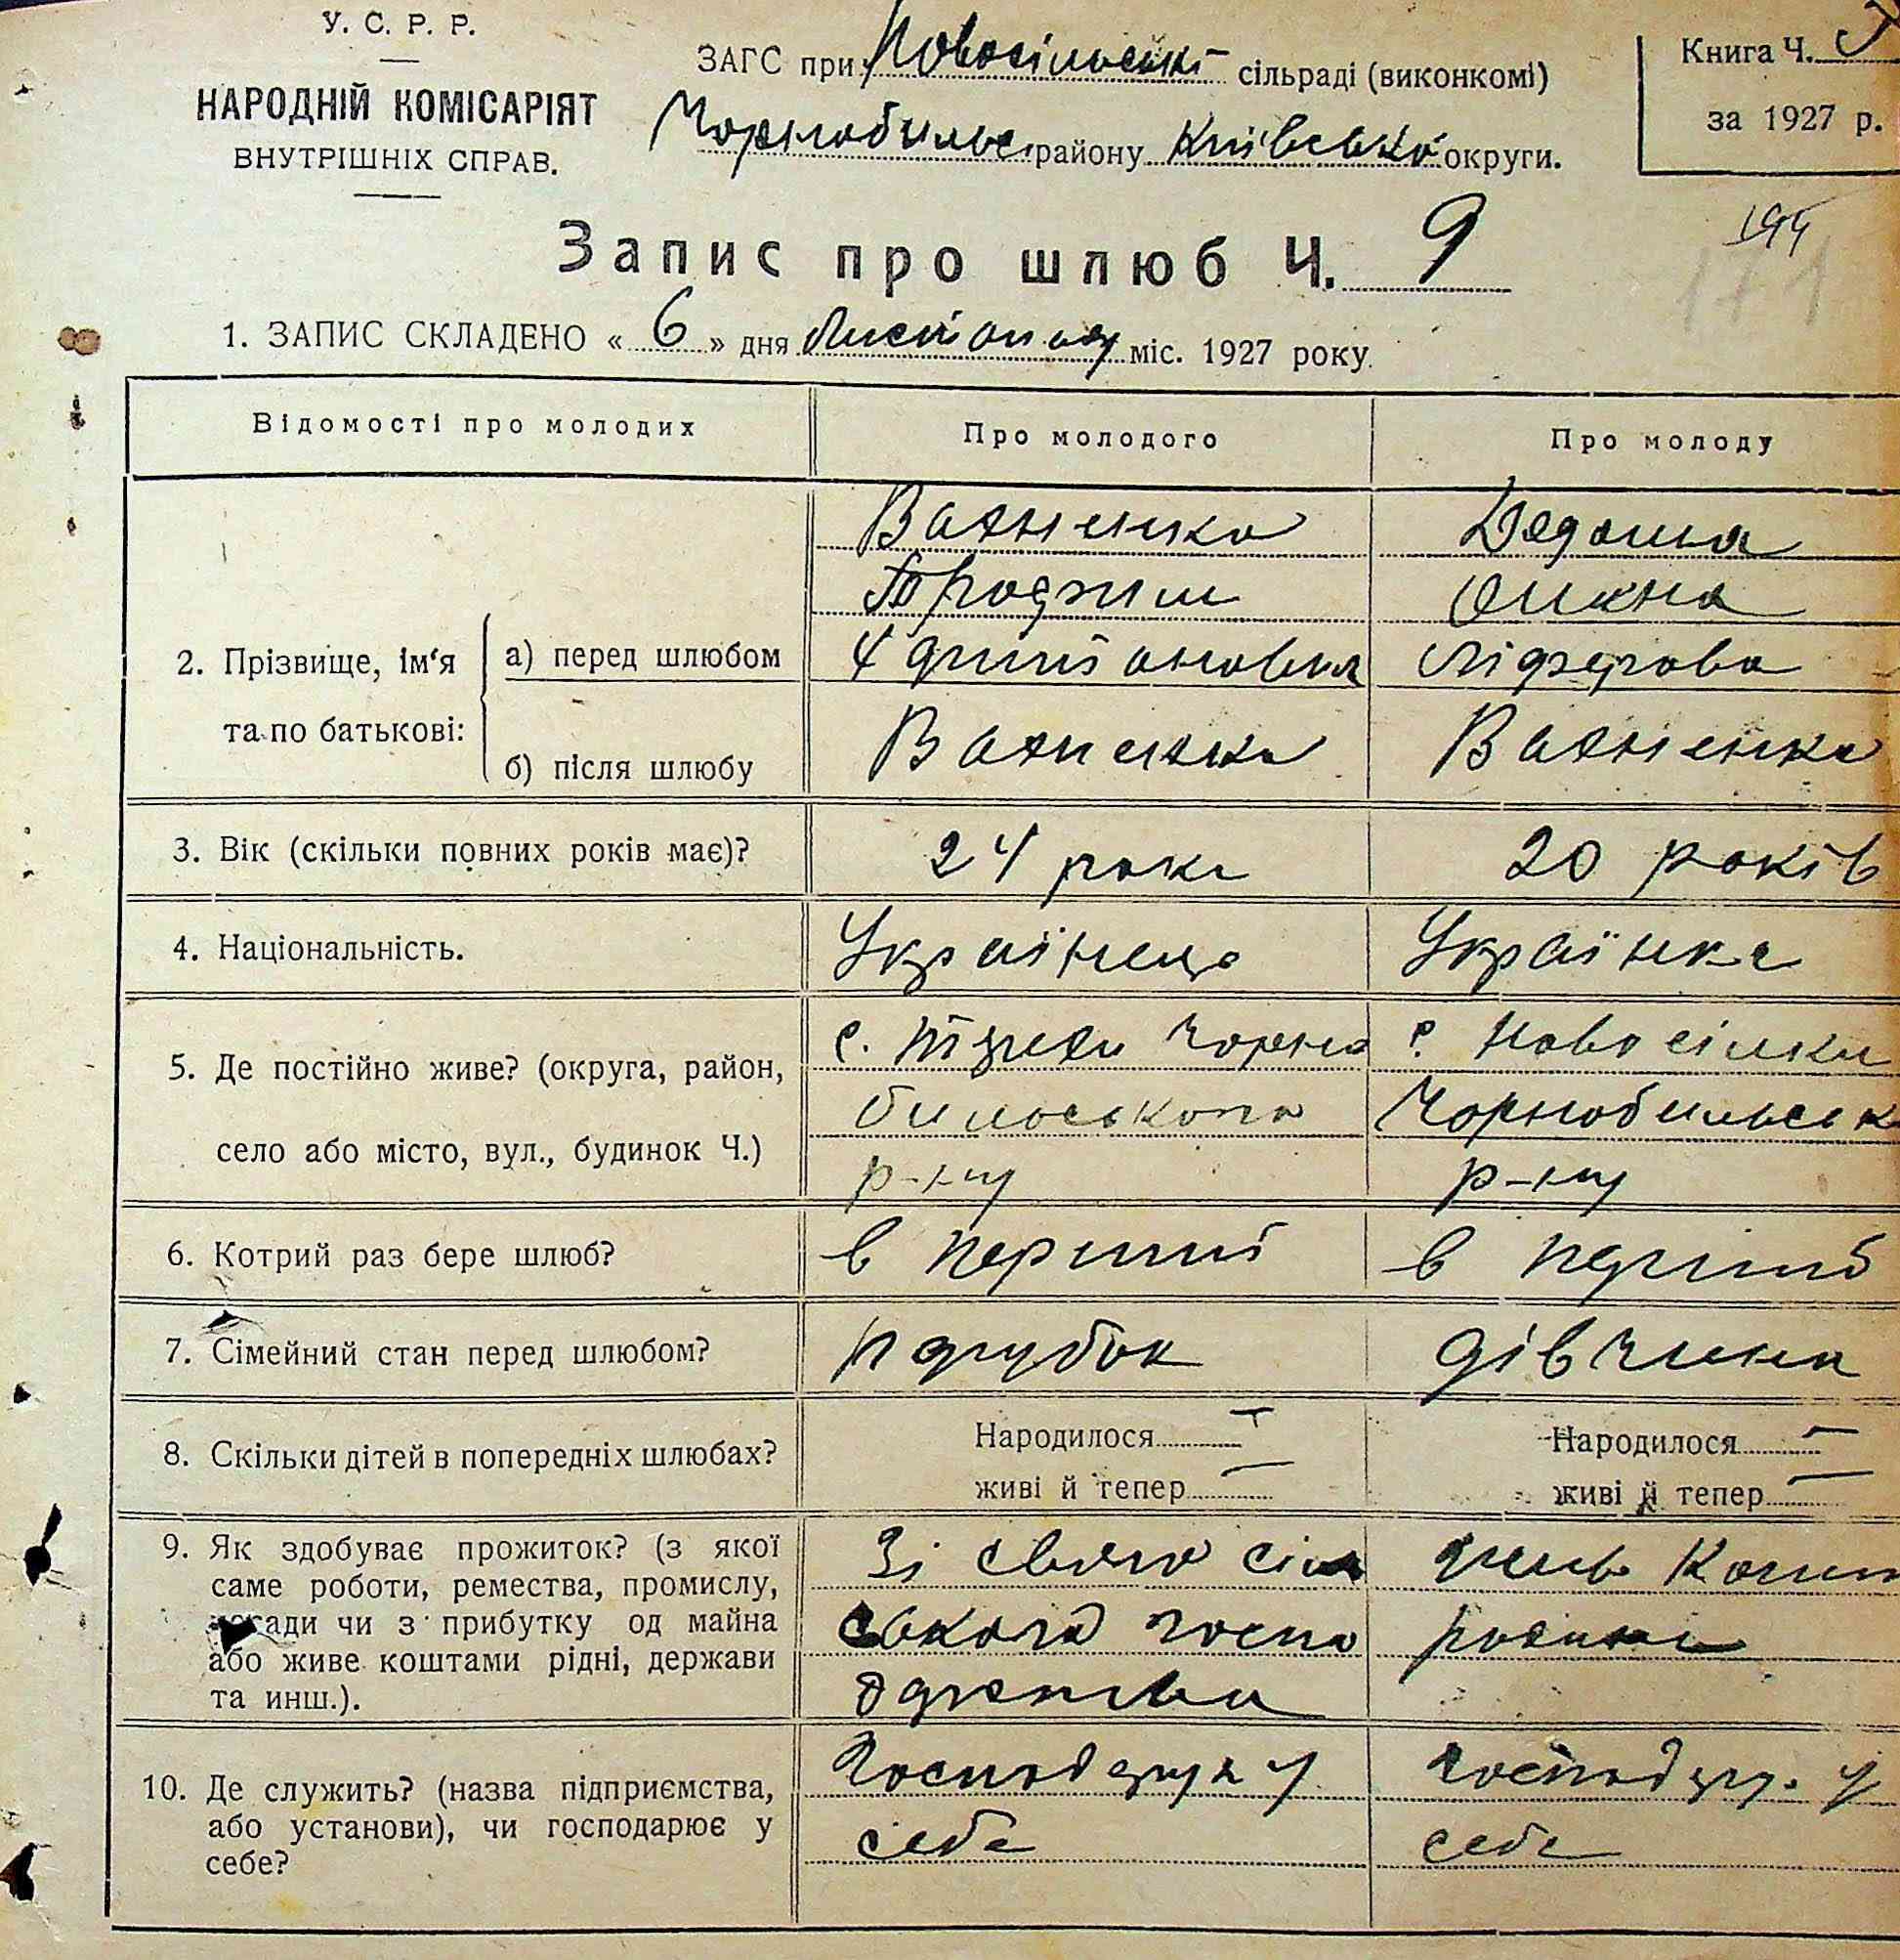 У. С. Р. Р.
НАРОДНІЙ КОМІСАРІЯТ
ВНУТРІШНІХ СПРАВ.
ЗАГС при Новосільській сільраді (виконкомі)
Чорнобильс. району Київської округи.
Книга Ч.
за 1927 р.
194
171
Запис про шлюб Ч. 9
1. ЗАПИС СКЛАДЕНО « 6 » дня Листопаду міс. 1927 року.
Відомості про молодих
Про молодого
Про молоду
2. Прізвище, ім‘я та по батькові:
а) перед шлюбом
Важненко
б) після шлюбу
Важненко
Важненко
3. Вік (скільки повних років має)?
24 роки
20 років
4. Національність.
Українець
Українка
5. Де постійно живе? (округа, район,
село або місто, вул., будинок Ч.)
с. Чорно
бильського
р-ну
с. Новосілки
Чорнобильськ
р-ну
6. Котрий раз бере шлюб?
в перший
в перший
7. Сімейний стан перед шлюбом?
парубок
дівчина
8. Скільки дітей в попередніх шлюбах?
Народилося —
живі й тепер —
Народилося —
живі й тепер —
9. Як здобуває прожиток? (з якої
саме роботи, ремества, промислу,
посади чи з прибутку од майна
або живе коштами рідні, держави
та инш.).
Зі свого сіль
ського госпо
дарства
10. Де служить? (назва підприємства,
або установи), чи господарює у
себе?
Господарює у
себе
господар. у
себе